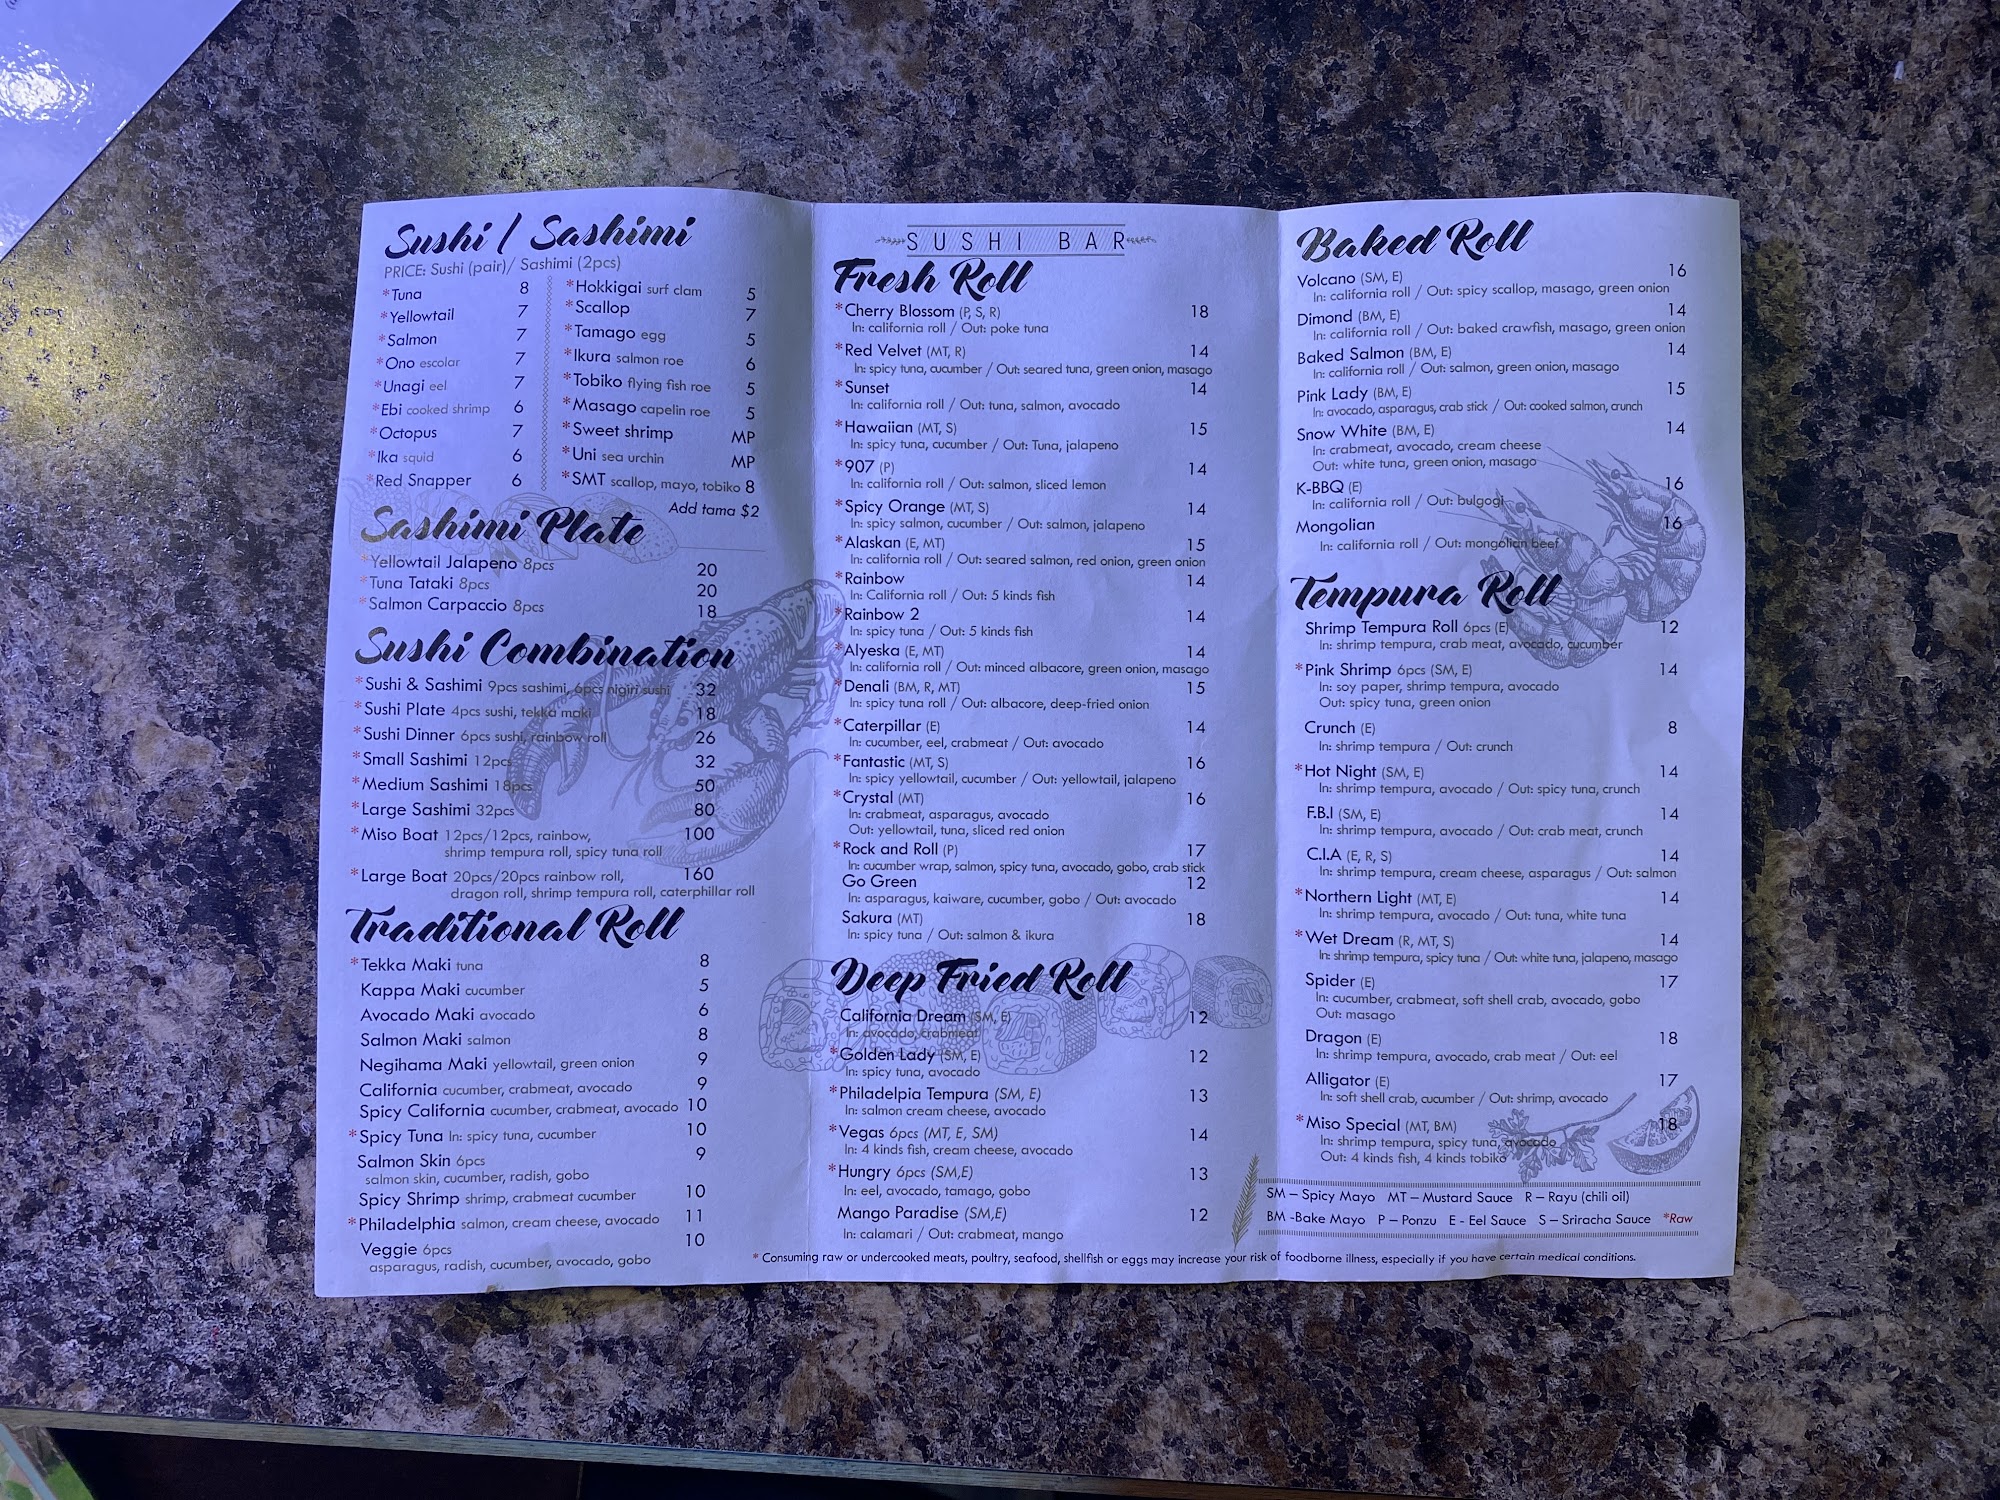 Sushi / Sashimi
PRICE: Sushi (pair)/ Sashimi (2pcs)
*Tuna 8
*Yellowtail 7
*Salmon 7
*Ono escolar 7
*Unagi eel 7
*Ebi cooked shrimp 6
*Octopus 7
*Ika squid 6
*Red Snapper 6
*Hokkigai surf clam 5
*Scallop 7
*Tamago egg 5
*Ikura salmon roe 6
*Tobiko flying fish roe 5
*Masago capelin roe 5
*Sweet shrimp MP
*Uni sea urchin MP
*SMT scallop, mayo, tobiko 8
Add tama $2
Sashimi Plate
*Yellowtail Jalapeno 8pcs 20
*Tuna Tataki 8pcs 20
*Salmon Carpaccio 8pcs 18
Sushi Combination
*Sushi & Sashimi 9pcs sashimi, 6pcs nigiri sushi 32
*Sushi Plate 4pcs sushi, tekka maki 18
*Sushi Dinner 6pcs sushi, rainbow roll 26
*Small Sashimi 12pcs 32
*Medium Sashimi 18pcs 50
*Large Sashimi 32pcs 80
*Miso Boat 12pcs/12pcs, rainbow, 100
shrimp tempura roll, spicy tuna roll
*Large Boat 20pcs/20pcs rainbow roll, 160
dragon roll, shrimp tempura roll, caterphillar roll
Traditional Roll
*Tekka Maki tuna 8
Kappa Maki cucumber 5
Avocado Maki avocado 6
Salmon Maki salmon 8
Negihama Maki yellowtail, green onion 9
California cucumber, crabmeat, avocado 9
Spicy California cucumber, crabmeat, avocado 10
*Spicy Tuna In: spicy tuna, cucumber 10
Salmon Skin 6pcs 9
salmon skin, cucumber, radish, gobo
Spicy Shrimp shrimp, crabmeat cucumber 10
*Philadelphia salmon, cream cheese, avocado 11
Veggie 6pcs 10
asparagus, radish, cucumber, avocado, gobo
SUSHI BAR
Fresh Roll
*Cherry Blossom (P, S, R) 18
In: california roll / Out: poke tuna
*Red Velvet (MT, R) 14
In: spicy tuna, cucumber / Out: seared tuna, green onion, masago
*Sunset 14
In: california roll / Out: tuna, salmon, avocado
*Hawaiian (MT, S) 15
In: spicy tuna, cucumber / Out: Tuna, jalapeno
*907 (P) 14
In: california roll / Out: salmon, sliced lemon
*Spicy Orange (MT, S) 14
In: spicy salmon, cucumber / Out: salmon, jalapeno
*Alaskan (E, MT) 15
In: california roll / Out: seared salmon, red onion, green onion
*Rainbow 14
In: California roll / Out: 5 kinds fish
*Rainbow 2 14
In: spicy tuna / Out: 5 kinds fish
*Alyeska (E, MT) 14
In: california roll / Out: minced albacore, green onion, masago
*Denali (BM, R, MT) 15
In: spicy tuna roll / Out: albacore, deep-fried onion
*Caterpillar (E) 14
In: cucumber, eel, crabmeat / Out: avocado
*Fantastic (MT, S) 16
In: spicy yellowtail, cucumber / Out: yellowtail, jalapeno
*Crystal (MT) 16
In: crabmeat, asparagus, avocado
Out: yellowtail, tuna, sliced red onion
*Rock and Roll (P) 17
In: cucumber wrap, salmon, spicy tuna, avocado, gobo, crab stick
Go Green 12
In: asparagus, kaiware, cucumber, gobo / Out: avocado
Sakura (MT) 18
In: spicy tuna / Out: salmon & ikura
Deep Fried Roll
California Dream (SM, E) 12
In: avocado, crabmeat
*Golden Lady (SM, E) 12
In: spicy tuna, avocado
*Philadelpia Tempura (SM, E) 13
In: salmon cream cheese, avocado
*Vegas 6pcs (MT, E, SM) 14
In: 4 kinds fish, cream cheese, avocado
*Hungry 6pcs (SM,E) 13
In: eel, avocado, tamago, gobo
Mango Paradise (SM,E) 12
In: calamari / Out: crabmeat, mango
Baked Roll
Volcano (SM, E) 16
In: california roll / Out: spicy scallop, masago, green onion
Dimond (BM, E) 14
In: california roll / Out: baked crawfish, masago, green onion
Baked Salmon (BM, E) 14
In: california roll / Out: salmon, green onion, masago
Pink Lady (BM, E) 15
In: avocado, asparagus, crab stick / Out: cooked salmon, crunch
Snow White (BM, E) 14
In: crabmeat, avocado, cream cheese
Out: white tuna, green onion, masago
K-BBQ (E) 16
In: california roll / Out: bulgogi
Mongolian 16
In: california roll / Out: mongolian beef
Tempura Roll
Shrimp Tempura Roll 6pcs (E) 12
In: shrimp tempura, crab meat, avocado, cucumber
*Pink Shrimp 6pcs (SM, E) 14
In: soy paper, shrimp tempura, avocado
Out: spicy tuna, green onion
Crunch (E) 8
In: shrimp tempura / Out: crunch
*Hot Night (SM, E) 14
In: shrimp tempura, avocado / Out: spicy tuna, crunch
F.B.I (SM, E) 14
In: shrimp tempura, avocado / Out: crab meat, crunch
C.I.A (E, R, S) 14
In: shrimp tempura, cream cheese, asparagus / Out: salmon
*Northern Light (MT, E) 14
In: shrimp tempura, avocado / Out: tuna, white tuna
*Wet Dream (R, MT, S) 14
In: shrimp tempura, spicy tuna / Out: white tuna, jalapeno, masago
Spider (E) 17
In: cucumber, crabmeat, soft shell crab, avocado, gobo
Out: masago
Dragon (E) 18
In: shrimp tempura, avocado, crab meat / Out: eel
Alligator (E) 17
In: soft shell crab, cucumber / Out: shrimp, avocado
*Miso Special (MT, BM) 18
In: shrimp tempura, spicy tuna, avocado
Out: 4 kinds fish, 4 kinds tobiko
SM – Spicy Mayo MT – Mustard Sauce R – Rayu (chili oil)
BM -Bake Mayo P – Ponzu E - Eel Sauce S – Sriracha Sauce *Raw
* Consuming raw or undercooked meats, poultry, seafood, shellfish or eggs may increase your risk of foodborne illness, especially if you have certain medical conditions.